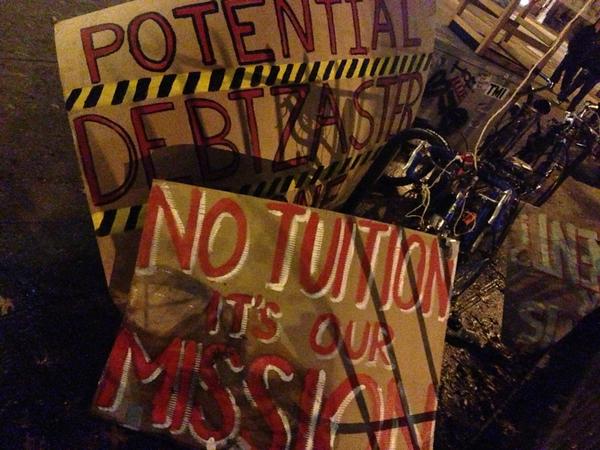 POTENTIAL
DEBTZASTER
NO TUITION
IT'S OUR
MISSION